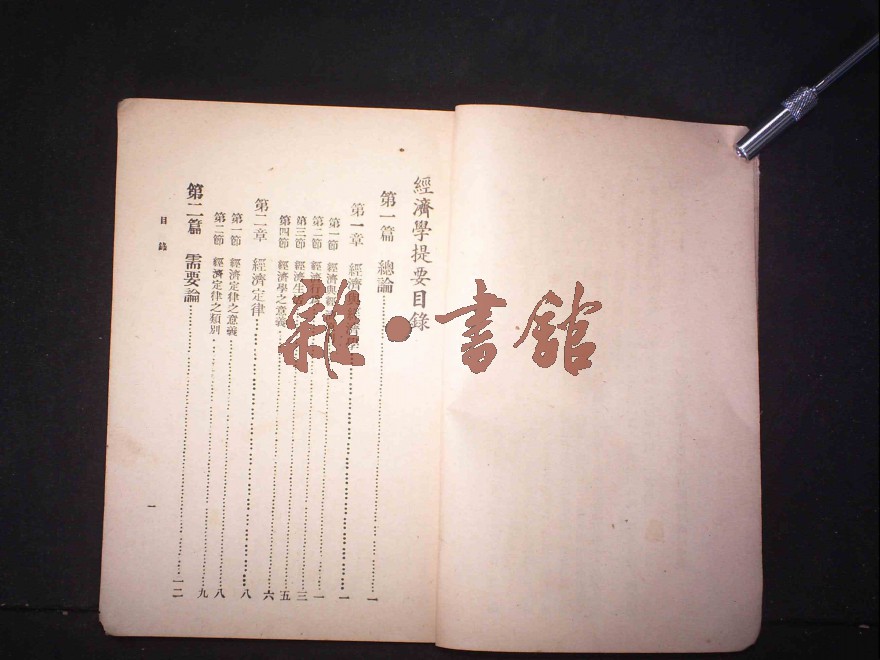 經濟學提要目錄
第一篇 總論……一
第一章 經濟與經濟學……一
第一節 經濟與經……一
第二節 經濟行……三
第三節 經濟生……五
第四節 經濟學之意義……六
第二章 經濟定律……八
第一節 經濟定律之意義……八
第二節 經濟定律之類別……九
第二篇 需要論……一二
目錄
一
雜·書館